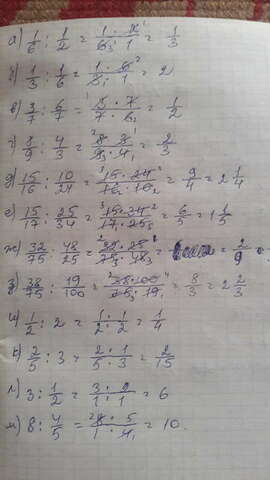 а) 1/6 : 1/2 = 1·2/6·1 = 1/3
б) 1/3 : 1/6 = 1·6/3·1 = 2
в) 3/7 : 6/7 = 3·7/7·6 = 1/2
г) 8/9 : 4/3 = 8·3/9·4 = 2/3
д) 15/16 : 10/24 = 15·24/16·10 = 9/4 = 2 1/4
е) 15/17 : 25/34 = 15·34/17·25 = 6/5 = 1 1/5
ж) 32/75 : 48/25 = 32·25/75·48 = 2/9
з) 38/75 : 19/100 = 38·100/75·19 = 8/3 = 2 2/3
и) 1/2 : 2 = 1·1/2·2 = 1/4
к) 2/5 : 3 = 2·1/5·3 = 2/15
л) 3 : 1/2 = 3·2/1·1 = 6
м) 8 : 4/5 = 8·5/1·4 = 10.